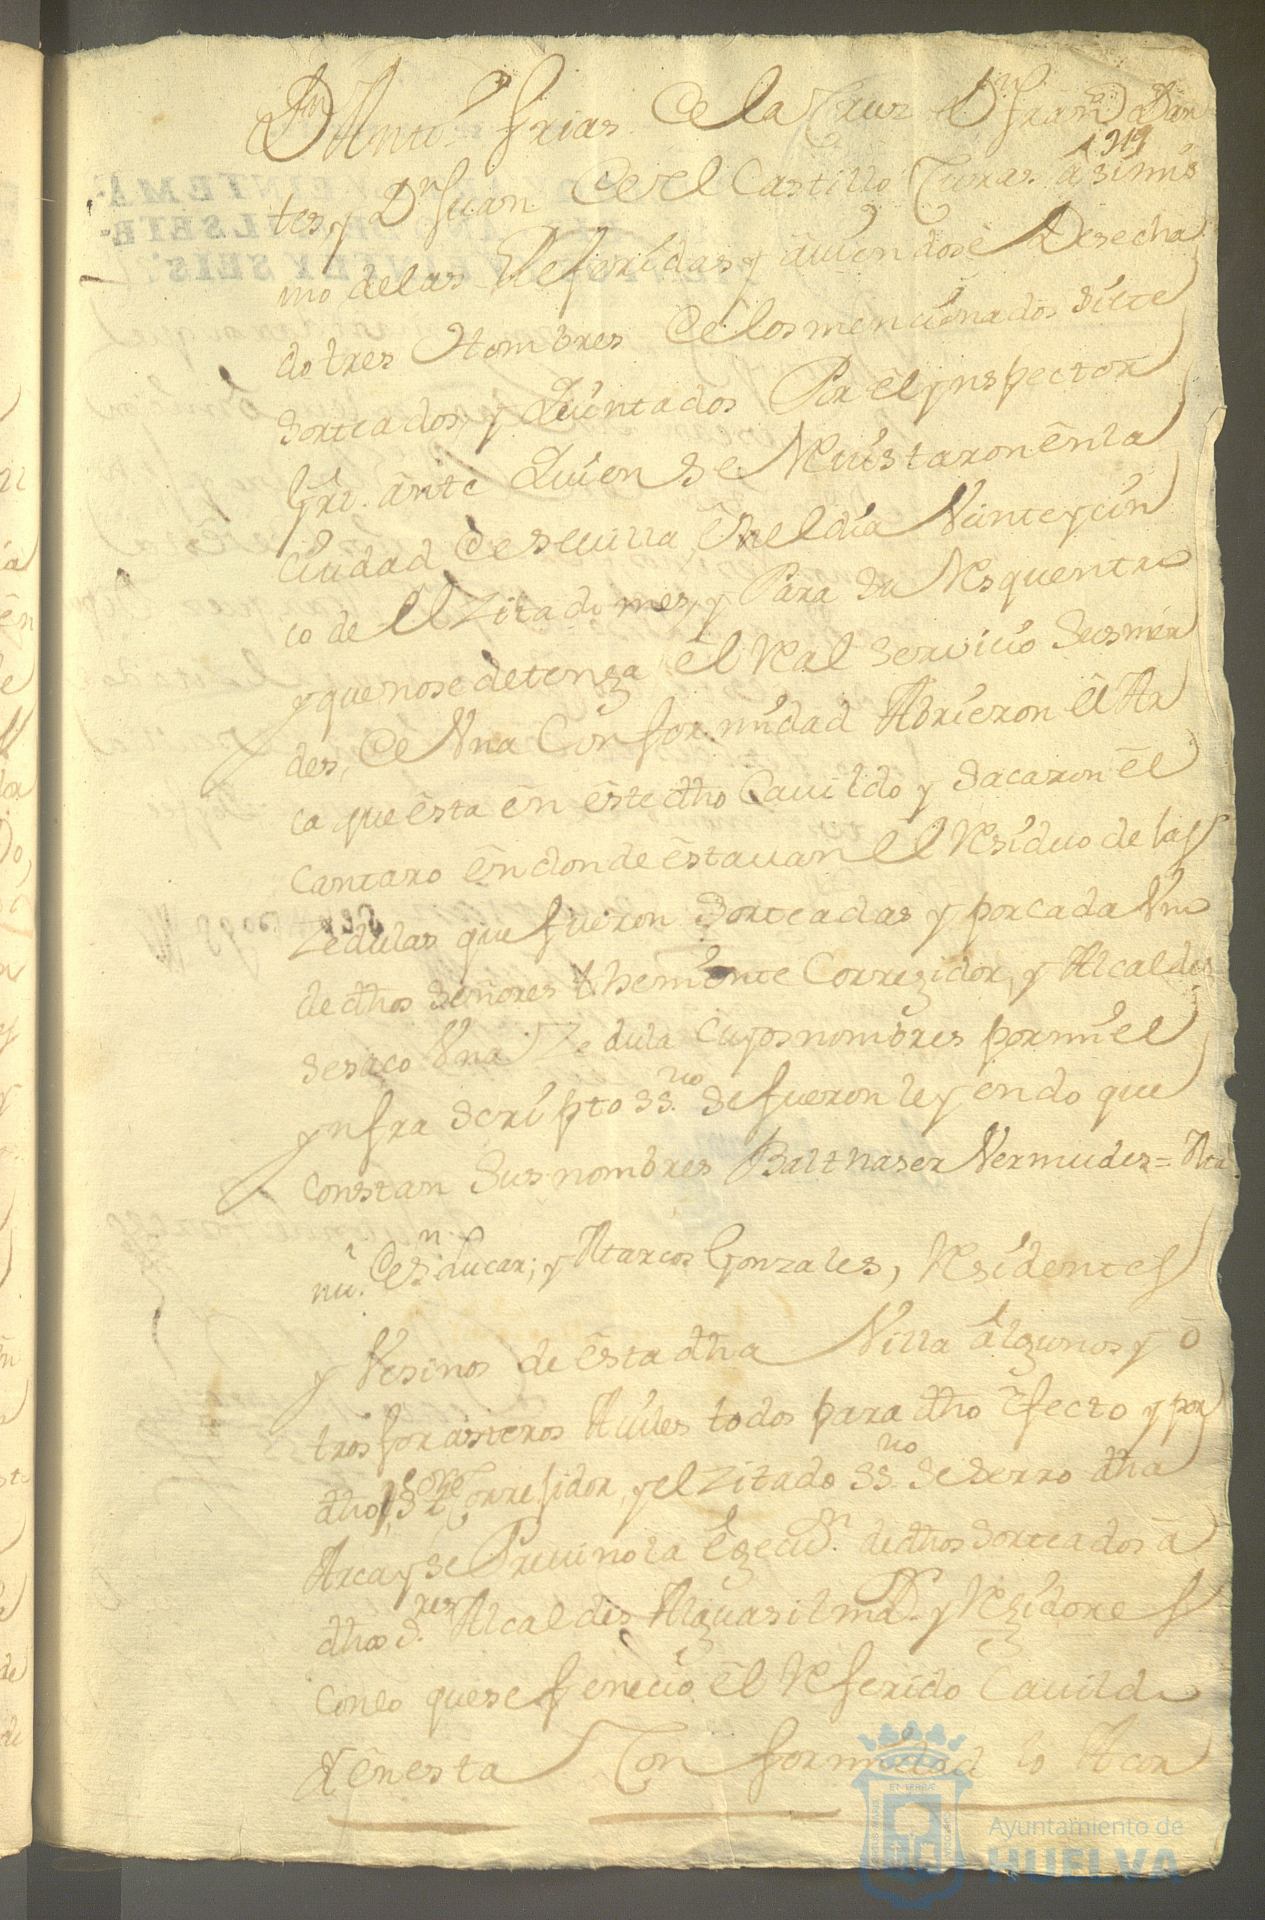 Dn Anto. frias de la Cruz Dn fran.co Dan
A 219
tes, y Dn Juan de el Castillo Curas asimis
mo de las Referidas y auiendose Desecha
do tres Hombres de los mencionados siete
sorteados, y Quintados Por el ynspector
Grl. ante Quien se Reuistaron en la
Ciudad de seuilla en el dia Veinte y cin
co de el Zitado mes, y Para su
y que no se detenga el Real seruicio sus mer
des, de Vna Conformidad Abrieron el Ar
ca que esta en este dho Cauildo y sacaron el
Cantaro en donde estauan el Residuo de las
Zedulas que fueron sorteadas y por cada Vno
de dhos señores themiente Corregidor, y Alcaldes
se saco Vna Zedula Cuyos nombres por mi el
ynfra scripto ss.no se fueron leyendo que
Constan sus nombres Balthaser Vermudes=
y Marcos Gonzales, Residentes
y Vesinos de esta dha Villa algunos y o
tros forasteros Auiles todos para dho Efecto y por
dho Corregidor, y el Zitado ss.no se serro dha
Arca y se Preuino la de dhos sorteados a
dhos s.res Alcaldes Alguasil mor y Regidores
Con lo que se fenecio el Referido Cauildo
Y en esta Conformidad lo Acor
Ayuntamiento de
HUELVA